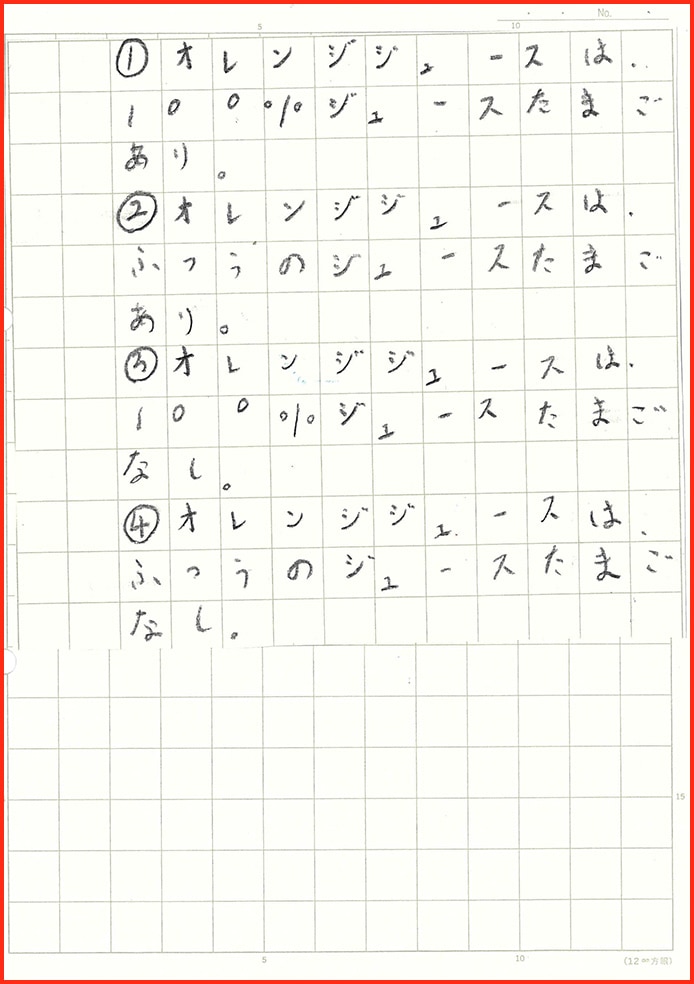 No.
5 10
①オレンジジュースは、
100%ジュースたまご
あり。
②オレンジジュースは、
ふつうのジュースたまご
あり。
③オレンジジュースは、
100%ジュースたまご
なし。
④オレンジジュースは、
ふつうのジュースたまご
なし。
15
5 10
(12㎜方眼)